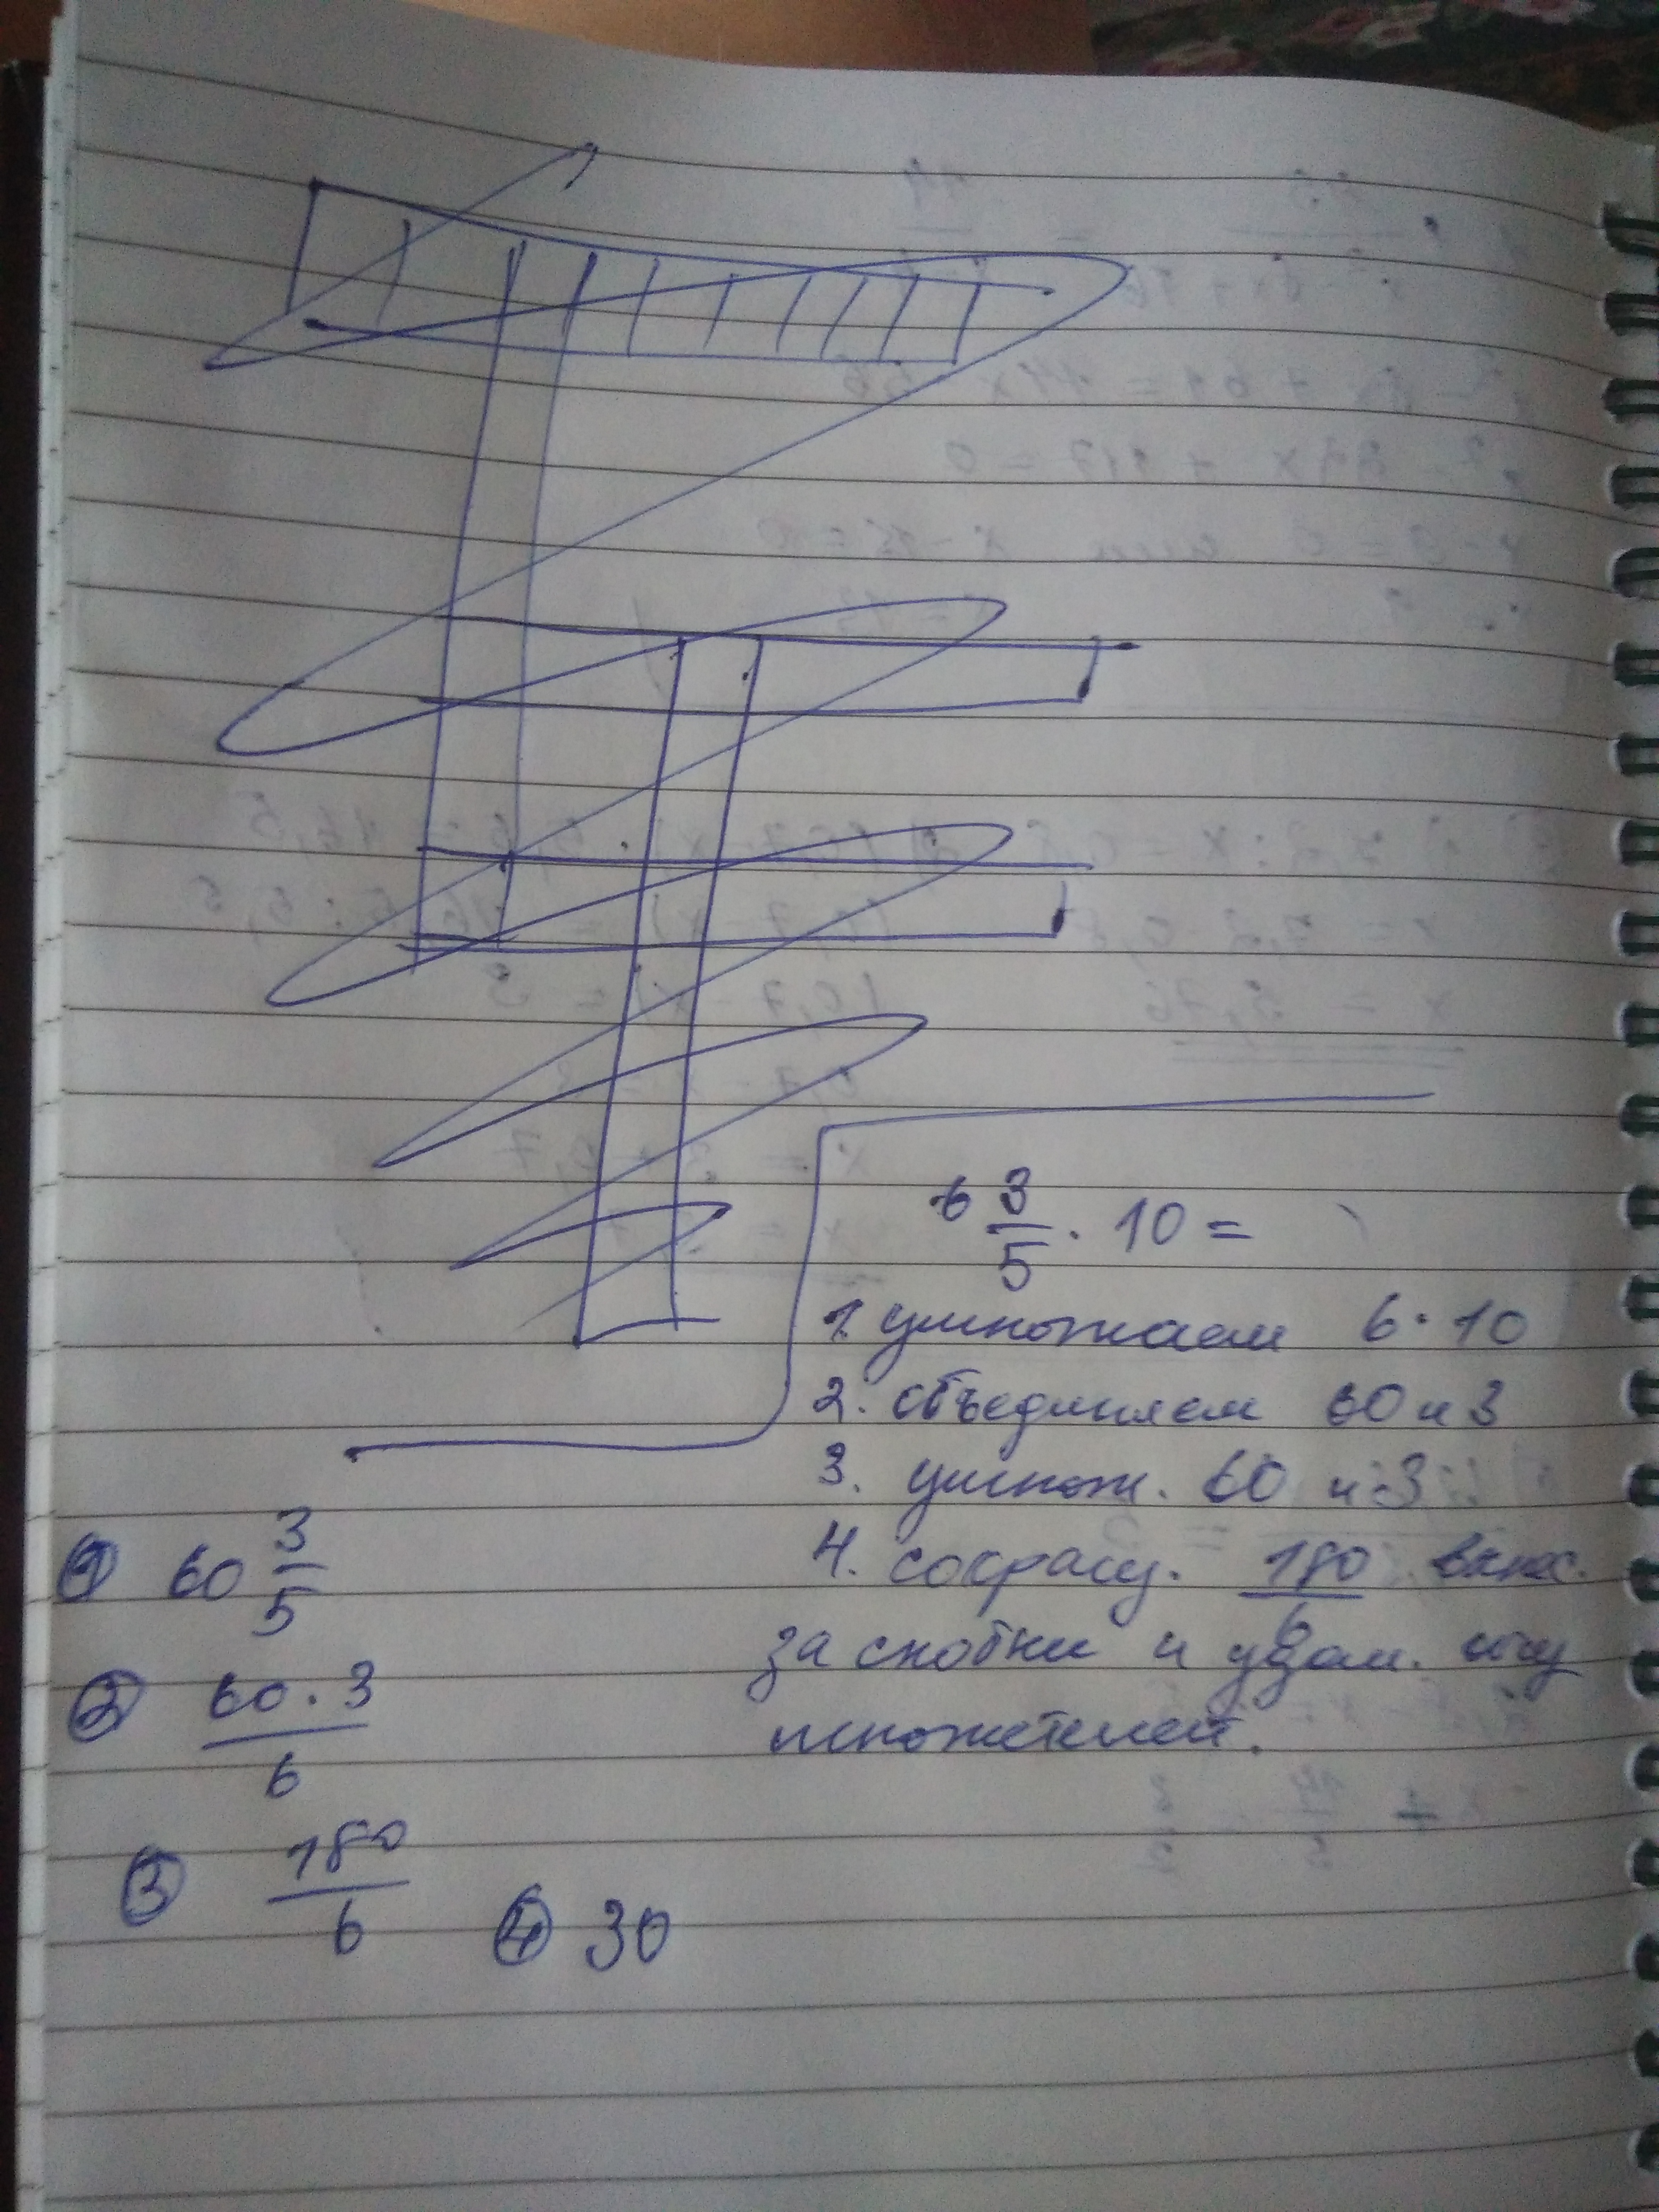 6 3/5 · 10 =
1. умножаем 6 · 10
2. объединяем 60 и 3
3. умнож. 60 и 3
4. сокращ. 180/6
за скобки и
множителей.
① 60 3/5
② 60 · 3 / 6
③ 180/6
④ 30